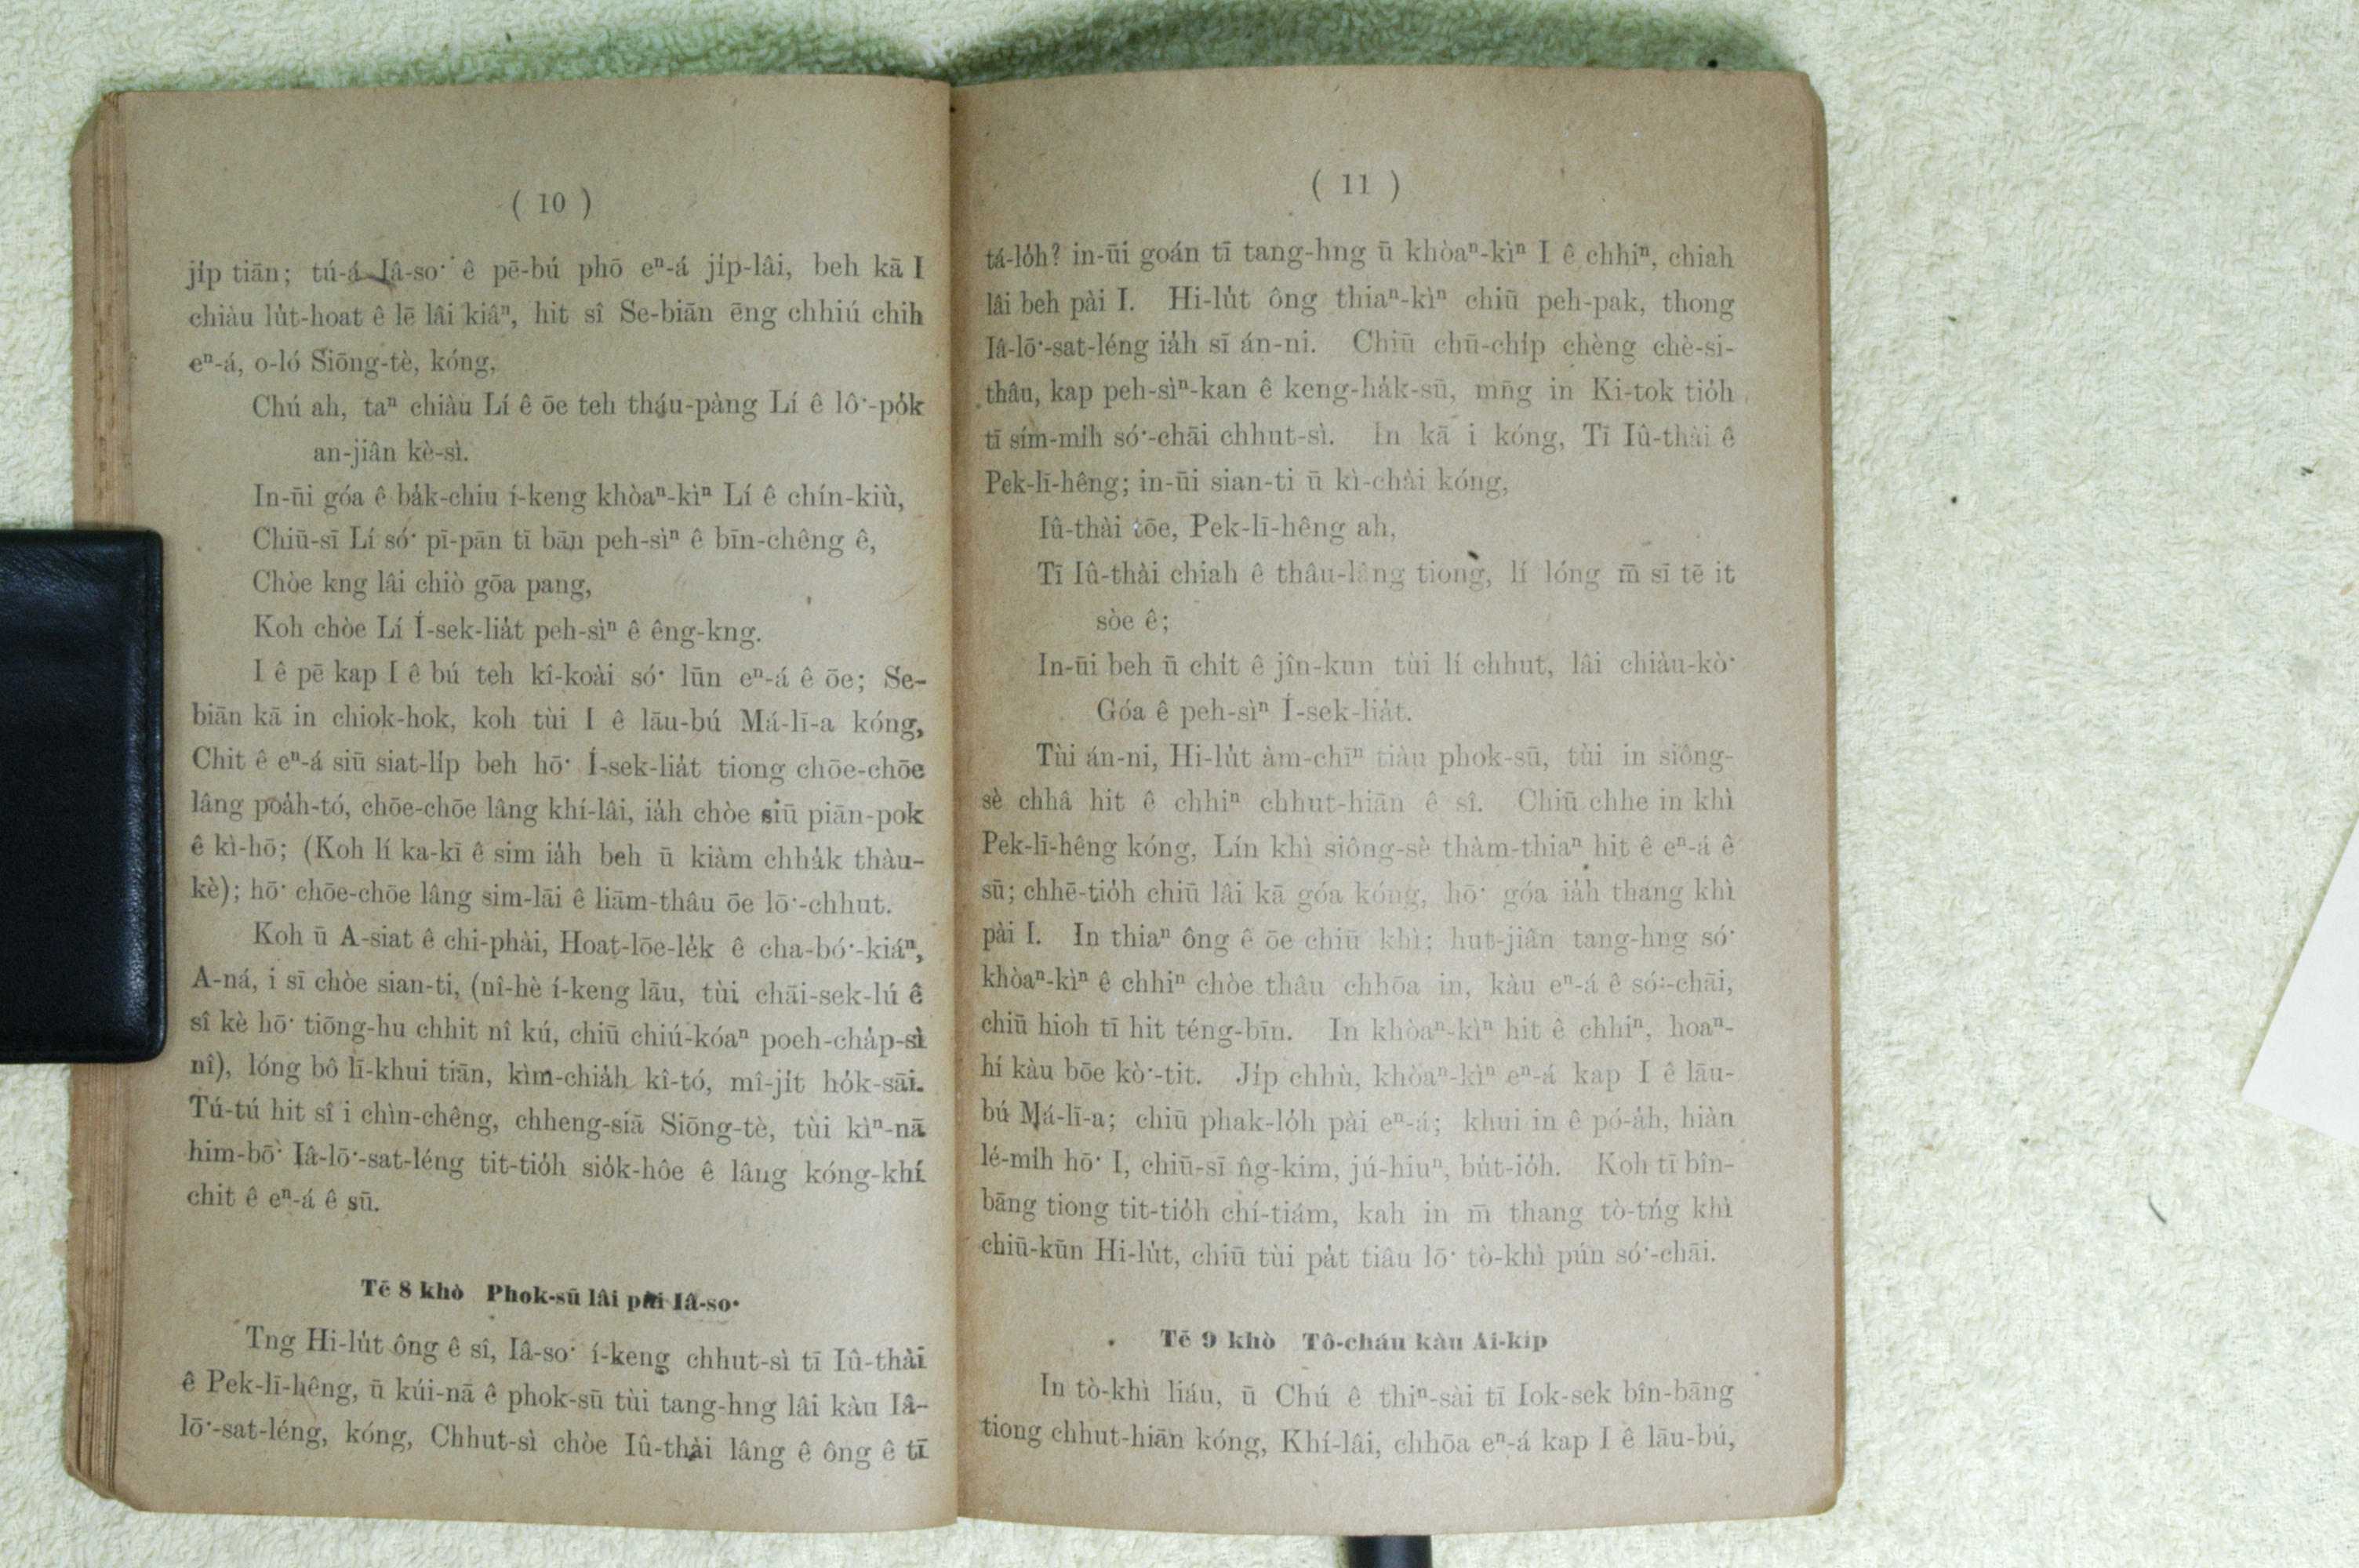 ( 10 )
ji̍p tiān; tú-á Iâ-so͘ ê pē-bú phō eⁿ-á ji̍p-lâi, beh kā I
chiàu lu̍t-hoat ê lē lâi kiâⁿ, hit sî Se-biān ēng chhiú chih
eⁿ-á, o-ló Siōng-tè, kóng,
Chú ah, taⁿ chiàu Lí ê ōe teh tháu-pàng Lí ê lô͘-po̍k
an-jiân kè-sì.
In-ūi góa ê ba̍k-chiu í-keng khòaⁿ-kìⁿ Lí ê chín-kiù,
Chiū-sī Lí só͘ pī-pān tī bān peh-sìⁿ ê bīn-chêng ê,
Chòe kng lâi chiò gōa pang,
Koh chòe Lí Í-sek-lia̍t peh-sìⁿ ê êng-kng.
I ê pē kap I ê bú teh kî-koài só͘ lūn eⁿ-á ê ōe; Se-
biān kā in chiok-hok, koh tùi I ê lāu-bú Má-lī-a kóng,
Chit ê eⁿ-á siū siat-li̍p beh hō͘ Í-sek-lia̍t tiong chōe-chōe
lâng poa̍h-tó, chōe-chōe lâng khí-lâi, ia̍h chòe siū piān-pok
ê kì-hō; (Koh lí ka-kī ê sim ia̍h beh ū kiàm chha̍k thàu-
kè); hō͘ chōe-chōe lâng sim-lāi ê liām-thâu ōe lō͘-chhut.
Koh ū A-siat ê chi-phài, Hoat-lōe-le̍k ê cha-bó͘-kiáⁿ,
A-ná, i sī chòe sian-ti, (nî-hè í-keng lāu, tùi chāi-sek-lú ê
sî kè hō͘ tiōng-hu chhit nî kú, chiū chiú-kóaⁿ poeh-cha̍p-sì
nî), lóng bô lī-khui tiān, kìm-chia̍h kî-tó, mî-ji̍t ho̍k-sāi.
Tú-tú hit sî i chìn-chêng, chheng-siā Siōng-tè, tùi kìⁿ-nā
him-bō͘ Iâ-lō͘-sat-léng tit-tio̍h sio̍k-hôe ê lâng kóng-khí
chit ê eⁿ-á ê sū.
Tē 8 khò Phok-sū lâi pài Iâ-so͘
Tng Hi-lu̍t ông ê sî, Iâ-so͘ í-keng chhut-sì tī Iû-thài
ê Pek-lī-hêng, ū kúi-nā ê phok-sū tùi tang-hng lâi kàu Iâ-
lō͘-sat-léng, kóng, Chhut-sì chòe Iû-thài lâng ê ông ê tī
( 11 )
tá-lo̍h? in-ūi goán tī tang-hng ū khòaⁿ-kìⁿ I ê chhiⁿ, chiah
lâi beh pài I. Hi-lu̍t ông thiaⁿ-kìⁿ chiū peh-pak, thong
Iâ-lō͘-sat-léng ia̍h sī án-ni. Chiū chū-chi̍p chèng chè-si-
thâu, kap peh-sìⁿ-kan ê keng-ha̍k-sū, mn̄g in Ki-tok tio̍h
tī sím-mi̍h só͘-chāi chhut-sì. In kā i kóng, Tī Iû-thài ê
Pek-lī-hêng; in-ūi sian-ti ū kì-chài kóng,
Iû-thài tōe, Pek-lī-hêng ah,
Tī Iû-thài chiah ê thâu-lâng tiong, lí lóng m̄ sī tē it
sòe ê;
In-ūi beh ū chi̍t ê jîn-kun tùi lí chhut, lâi chiàu-kò͘
Góa ê peh-sìⁿ Í-sek-lia̍t.
Tùi án-ni, Hi-lu̍t àm-chīⁿ tiàu phok-sū, tùi in siông-
sè chhâ hit ê chhiⁿ chhut-hiān ê sî. Chiū chhe in khì
Pek-lī-hêng kóng, Lín khì siông-sè thàm-thiaⁿ hit ê eⁿ-á ê
sū; chhē-tio̍h chiū lâi kā góa kóng, hō͘ góa ia̍h thang khì
pài I. In thiaⁿ ông ê ōe chiū khì; hut-jiân tang-hng só͘
khòaⁿ-kìⁿ ê chhiⁿ chòe thâu chhōa in, kàu eⁿ-á ê só͘-chāi,
chiū hioh tī hit téng-bīn. In khòaⁿ-kìⁿ hit ê chhiⁿ, hoaⁿ-
hí kàu bōe kò͘-tit. Ji̍p chhù, khòaⁿ-kìⁿ eⁿ-á kap I ê lāu-
bú Má-lī-a; chiū phak-lo̍h pài eⁿ-á; khui in ê pó-a̍h, hiàn
lé-mi̍h hō͘ I, chiū-sī n̂g-kim, jú-hiuⁿ, bu̍t-io̍h. Koh tī bîn-
bāng tiong tit-tio̍h chí-tiám, kah in m̄ thang tò-tńg khì
chiū-kūn Hi-lu̍t, chiū tùi pa̍t tiâu lō͘ tò-khì pún só͘-chāi.
Tē 9 khò Tô-cháu kàu Ai-ki̍p
In tò-khì liáu, ū Chú ê thiⁿ-sài tī Iok-sek bîn-bāng
tiong chhut-hiān kóng, Khí-lâi, chhōa eⁿ-á kap I ê lāu-bú,